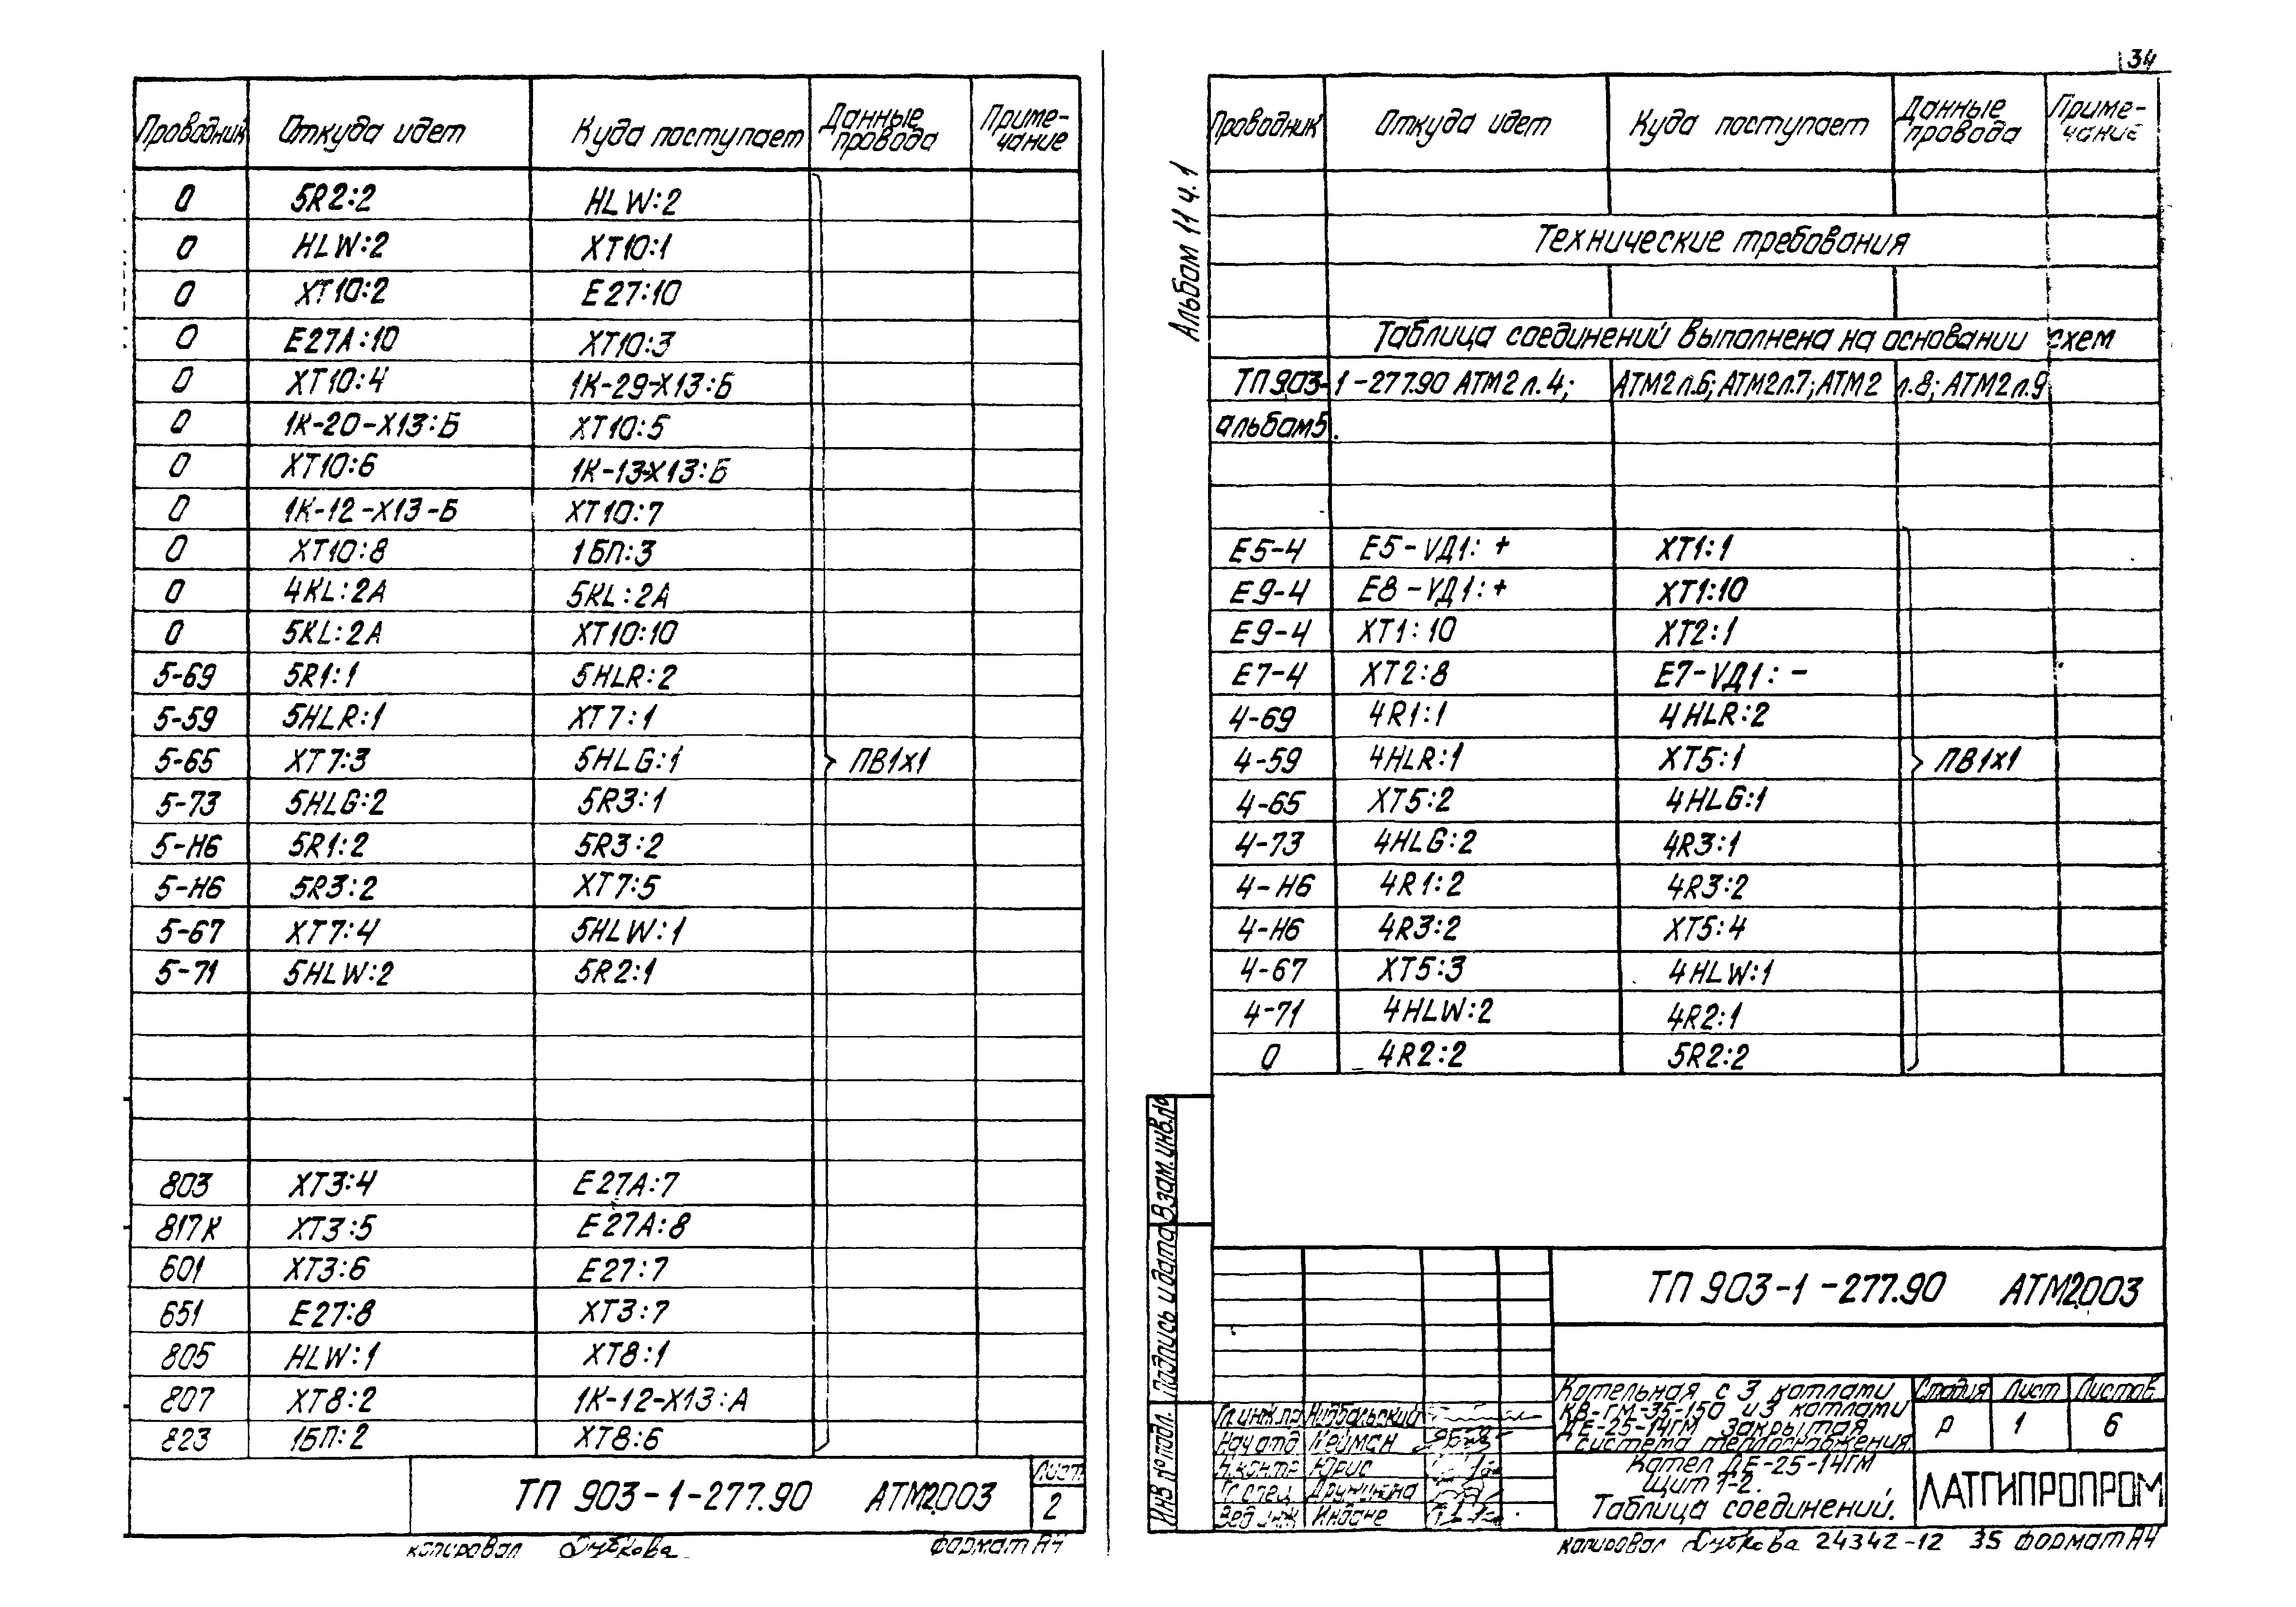 Проводник Откуда идет Куда поступает Данные провода Приме-чание
0 5R2:2 HLW:2
0 HLW:2 XT10:1
0 XT10:2 E27:10
0 E27A:10 XT10:3
0 XT10:4 1K-29-X13:Б
0 1K-20-X13:Б XT10:5
0 XT10:6 1K-13-X13:Б
0 1K-12-X13-Б XT10:7
0 XT10:8 1БП:3
0 4KL:2A 5KL:2A
0 5KL:2A XT10:10
5-69 5R1:1 5HLR:2
5-59 5HLR:1 XT7:1
5-65 XT7:3 5HLG:1 ПВ1х1
5-73 5HLG:2 5R3:1
5-Н6 5R1:2 5R3:2
5-Н6 5R3:2 XT7:5
5-67 XT7:4 5HLW:1
5-71 5HLW:2 5R2:1
803 XT3:4 E27A:7
817К XT3:5 E27A:8
601 XT3:6 E27:7
651 E27:8 XT3:7
805 HLW:1 XT8:1
807 XT8:2 1K-12-X13:A
823 1БП:2 XT8:6
ТП 903-1-277.90 АТМ2.003
Лист
2
копировал Дубкова формат А4
34
Альбом 11 ч.1
Проводник Откуда идет Куда поступает Данные провода Приме-чание
Технические требования
Таблица соединений выполнена на основании схем
ТП 903-1-277.90 АТМ2 л.4; АТМ2 л.6; АТМ2 л.7; АТМ2 л.8; АТМ2 л.9
альбом 5.
E5-4 E5-VД1:+ XT1:1
E9-4 E8-VД1:+ XT1:10
E9-4 XT1:10 XT2:1
E7-4 XT2:8 E7-VД1:-
4-69 4R1:1 4HLR:2
4-59 4HLR:1 XT5:1 ПВ1х1
4-65 XT5:2 4HLG:1
4-73 4HLG:2 4R3:1
4-Н6 4R1:2 4R3:2
4-Н6 4R3:2 XT5:4
4-67 XT5:3 4HLW:1
4-71 4HLW:2 4R2:1
0 4R2:2 5R2:2
Инв № подл. Подпись и дата Взам.инв.№
ТП 903-1-277.90 АТМ2.003
Котельная с 3 котлами
КВ-ГМ-35-150 и 3 котлами
ДЕ-25-14ГМ Закрытая
система теплоснабжения
Стадия Лист Листов
Р 1 6
Гл.инж.пр
Нач.отд. Нейман
Н.контр Юрис
Гл.спец. Дружинина
Вед.инж Индане
Котел ДЕ-25-14ГМ
Щит 1-2.
Таблица соединений.
ЛАТГИПРОПРОМ
копировал Дубкова 24342-12 35 формат А4